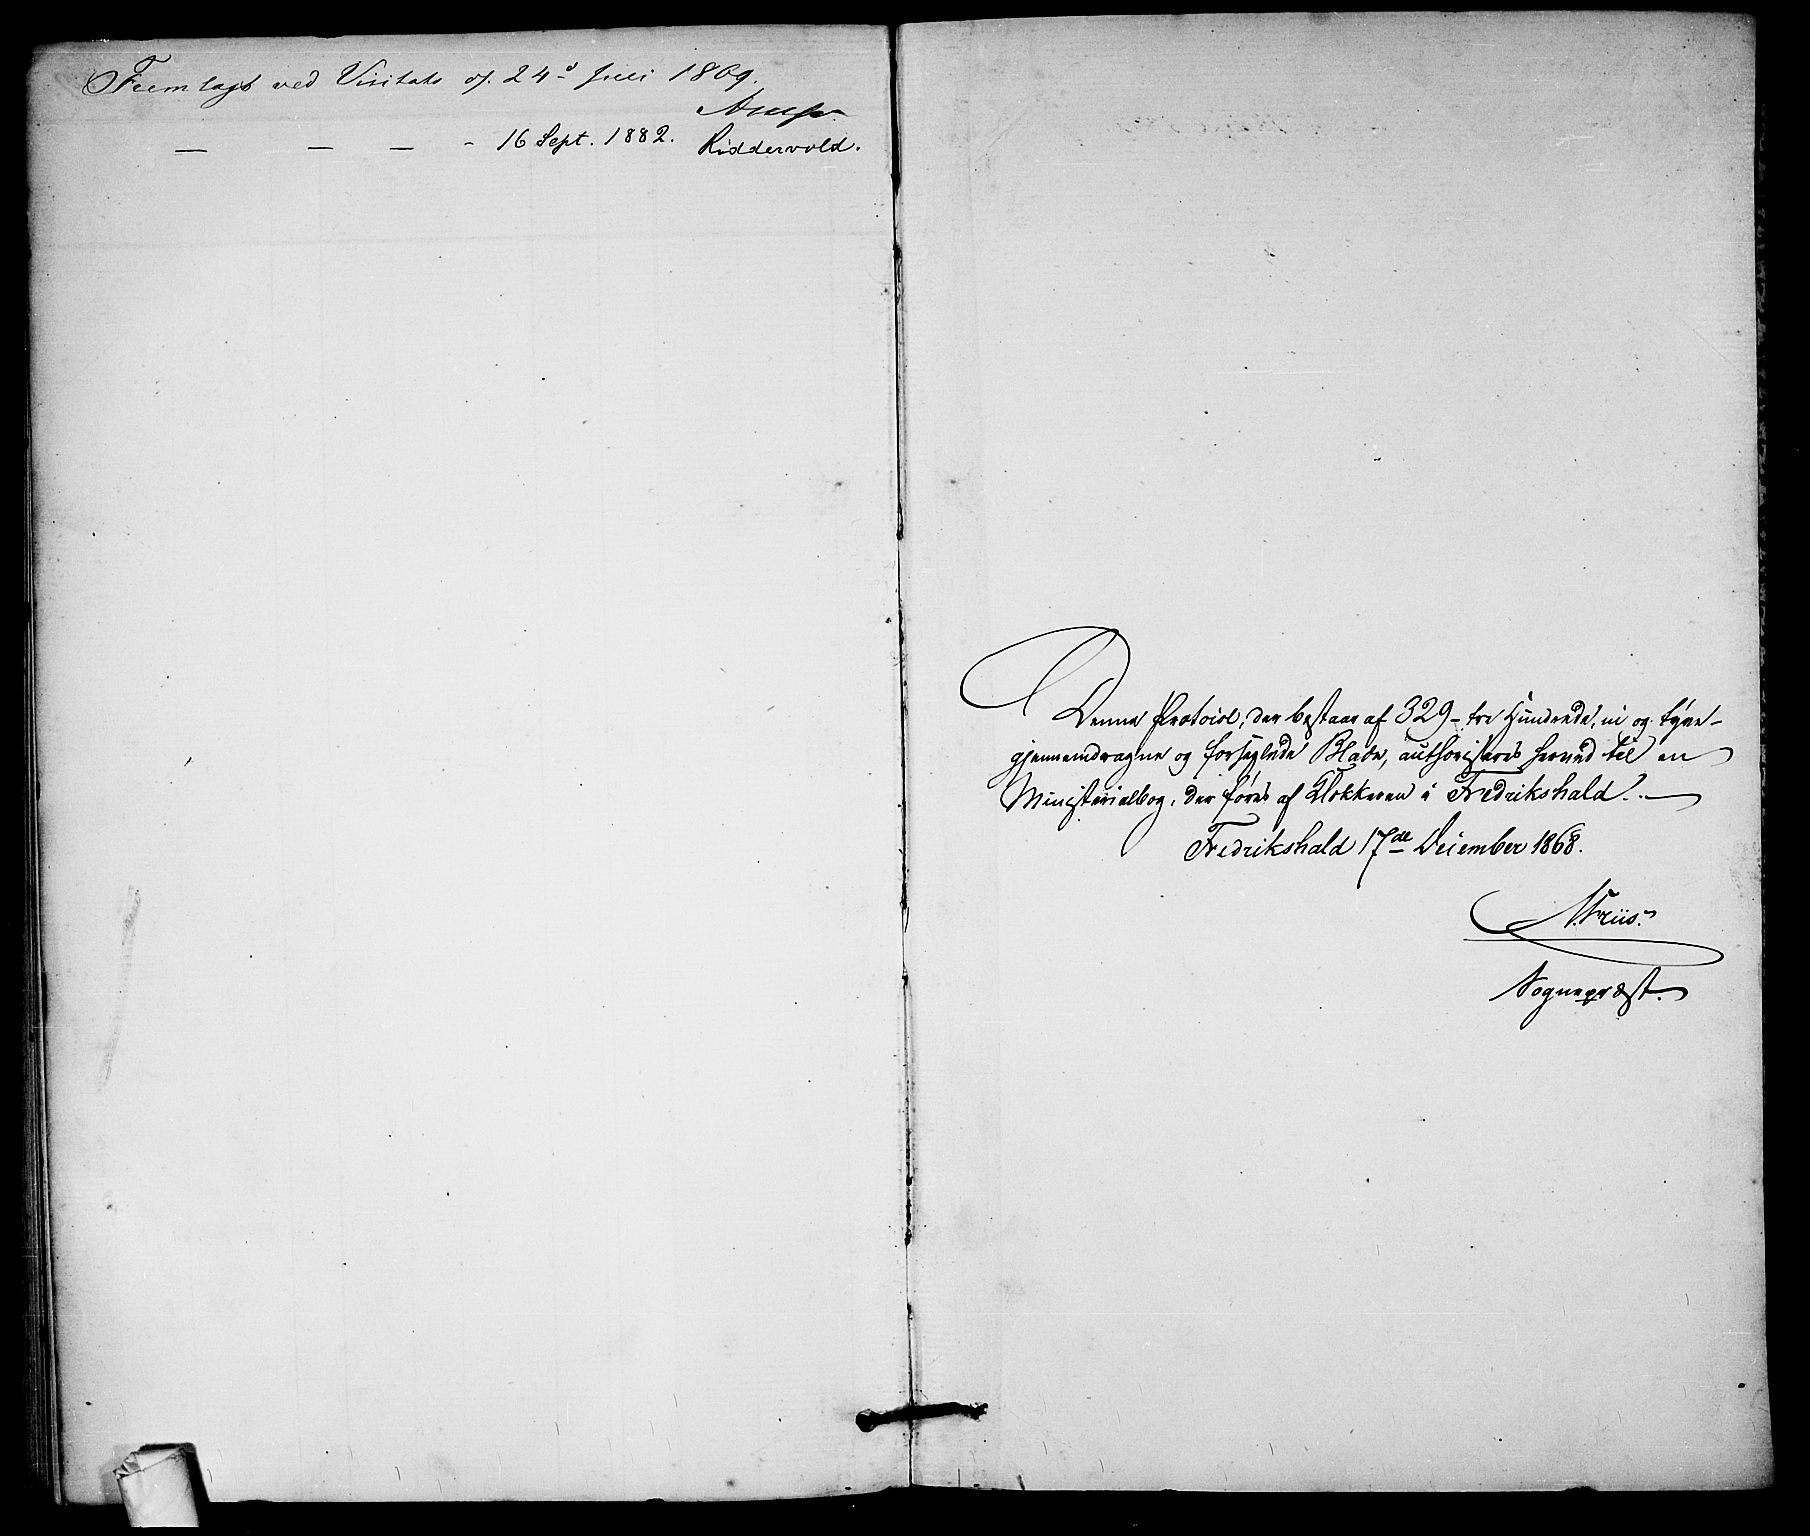 Fremlagt ved Visitats d. 24d Juli 1869.
Arup
— — — - 16 Sept. 1882. Riddervold.
Denne Protocol, der bestaar af 329 - tre Hundrede, ni og tyve -
gjennemdragne og forseglede Blade, authoriseres herved til en
Ministerialbog, der føres af Klokkeren i Fredrikshald. -
Fredrikshald 17de December 1868.
N. Friis.
Sognepræst.